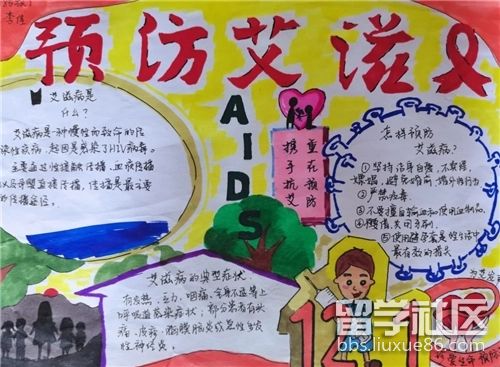 预防艾滋
AIDS
艾滋病是
什么?
艾滋病是一种慢性而致命的传
染性疾病,起因是感染了HIV病毒。
主要通过性接触传播、血液传播
以及母婴直接传播,
携手抗艾
重在预防
怎样预防
艾滋病?
①坚持洁身自爱,不卖淫、
嫖娼,避免婚前、婚外性行为
②严禁吸毒
③不要擅自输血和使用血制品,
⑤使用避孕套是性生活中
最有效的措
艾滋病的典型症状
有发热、乏力、咽痛、全身不适等上
呼吸道感染症状;部分患者有头
痛、皮疹、脑膜脑炎或急性多发
性神经炎。
12.1
留学社区
bbs.liuxue86.com